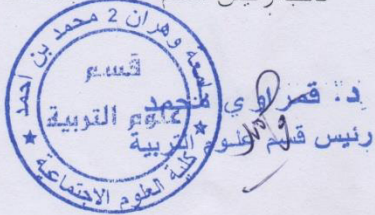 جامعة وهران 2 محمد بن أحمد
قسم
علوم التربية
كلية العلوم الاجتماعية
د: قمراوي محمد
رئيس قسم علوم التربية